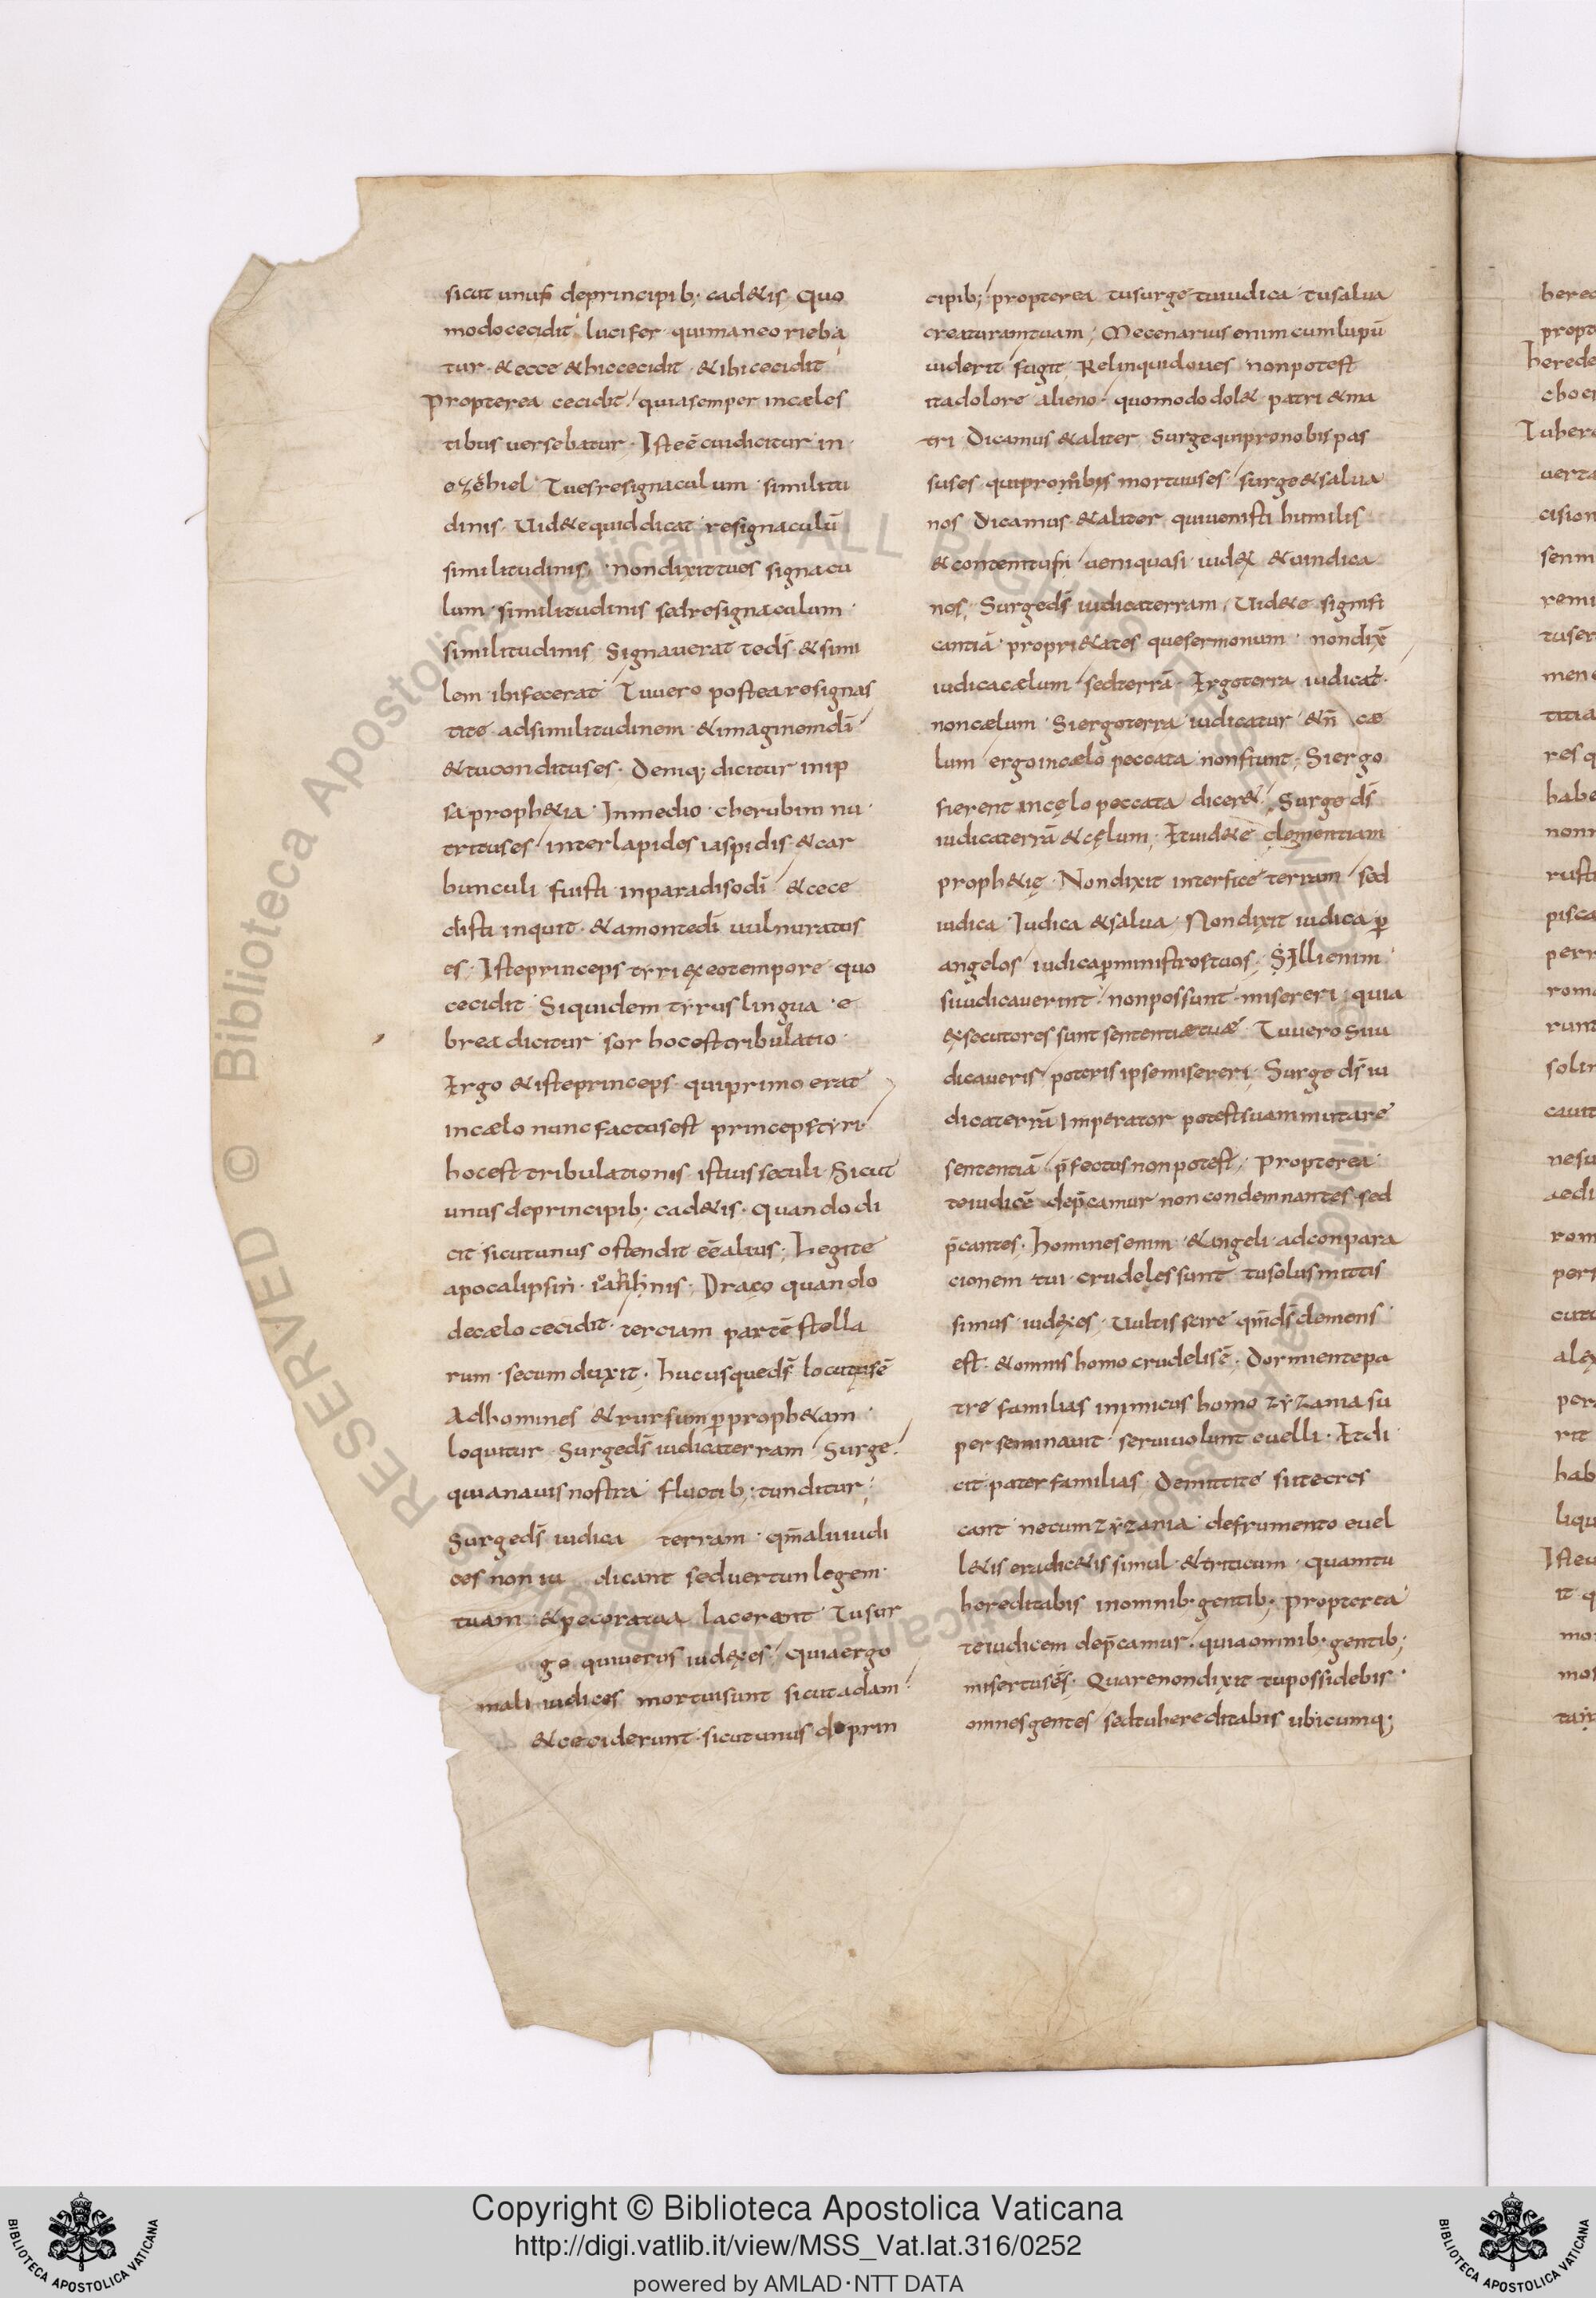 sicut unus deprincipib; cad&is, Quo
modocecidit lucifer quimaneorieba
tur &ecce &hiccecidit &ibicecidit
Propterea cecidit quiasemper incæles
tibus versebatur. Isteē cuidicitur in
ezechiel Tuesresignaculum similitu
dinis. Uid&equiddicat resignaculū
similitudinis, nondixittues signacu
lum similitudinis sedresignaculum
similitudinis Signauerat teds̄ &simi
lem ibifecerat Tuuero postearesignas
tite adsimilitudinem &imaginemdī
&tuconditues. Deniq; dicitur inip
saproph&ia Inmedio cherubim nu
trituses interlapides iaspidis &car
bunculi fuisti inparadisodī &cece
disti inquit &amontedī uulnuratus
es; Isteprinceps tyri exeotempore quo
cecidit Siquidem tyruslingua e
brea dicitur sor hocesttribulatio
Ergo &isteprinceps quiprimo erat
incælo nunc factusest princepstyri
hocest tribulationis istiusseculi. Sicut
unus deprincipib; cad&is. Quando di
cit sicutunus ostendit eēalius; Legite
apocalipsin iohannis. Draco quando
decælo cecidit. terciam partē stella
rum secum duxit. hucusqueds̄ locutusē
Adhomines &rursum pproph&am
loquitur Surgeds̄ iudicaterram Surge
quianauisnostra fluctib; tunditur;
Surgeds̄ iudica terram qm̄aluiudi
ces non iu dicant seduertunlegem
tuam &pecoratua lacerant Tusur
ge quiuerus iudexes Quiaergo
mali iudices mortuisunt sicutadam
&ceciderunt sicutunus deprin
cipib; propterea tusurge tuiudica tusalua
creaturamtuam; Mecenarius enim cumlupū
uiderit fugit Relinquidoues nonpotest
itadolore alieno quomodo dol& patri &ma
tri Dicamus &aliter Surgequipronobispas
suses quipronobis mortuuses surge&salua
nos Dicamus &aliter quiuenisti humilis
&contemtus ueniquasi iudex &uindica
nos; Surgeds̄ iudicaterram, Uid&e signifi
cantiā propri&ates quesermonum nondixē
iudicacælum sedterrā. Ergoterra iudicat.
noncælum Siergoterra iudicatur &n̄ cæ
lum ergoincælo peccata nonfiunt; Siergo
fierent incęlo peccata dicer& Surge ds̄
iudicaterrā &cęlum; Etuid&e clementiam
proph&ię Nondixit interfice terram sed
iudica Iudica &salua Nondixit iudica p
angelos iudicapministrostuos; SIllienim
siiudicauerint nonpossunt misereri quia
exsecutores sunt sententiætuæ Tuuero siiu
dicaueris poteris ipsemisereri; Surge ds̄ iu
dicaterrā Imperator potestsuammutare
sententiā p̄fectus nonpotest; Propterea
teiudicē dep̄camur non condemnantes sed
p̄cantes. Homines enim &angeli adconpara
cionem tui crudeles sunt tusolusmitis
simus iudexes, Uultis scire qm̄ds̄ clemens
est. &omnis homo crudelisē. Dormientepa
tre familias inimicus homo zyzania su
perseminauit seruiuolunt euelli. Etdi
cit paterfamilias Demittite sutecres
cant necumzyzania defrumento euel
l&is eradic&issimul &triticum Quamtu
hereditabis inomnib; gentib; Propterea
teiudicem dep̄camur quiaomnib; gentib;
misertuses. Quarenondixit tupossidebis
omnesgentes sedtuhereditabis ubicumq;
RESERVED © Biblioteca Apostolica Vaticana, ALL RIGHTS RESERVED
Copyright © Biblioteca Apostolica Vaticana
http://digi.vatlib.it/view/MSS_Vat.lat.316/0252
powered by AMLAD·NTT DATA
BIBLIOTECA APOSTOLICA VATICANA
BIBLIOTECA APOSTOLICA VATICANA